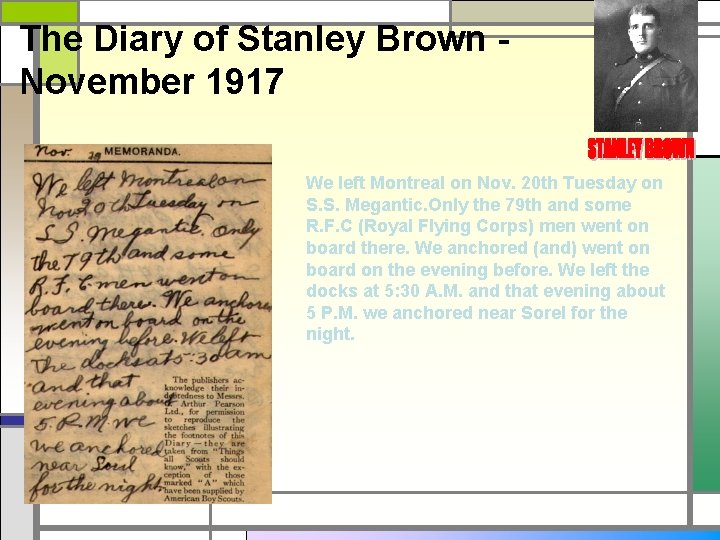 The Diary of Stanley Brown -
November 1917
STANLEY BROWN
Nov. 19 MEMORANDA.
We left Montreal on
Nov. 20th Tuesday on
S.S. Megantic. Only
the 79th and some
R.F.C. men went on
board there. We anchored
went on board on the
evening before. We left
the docks at 5:30 am
and that
evening about
5. P.M. we
we anchored
near Sorel
for the night.
The publishers ac-
knowledge their in-
debtedness to Messrs.
C. Arthur Pearson
Ltd., for permission
to reproduce the
sketches illustrating
the footnotes of this
Diary—they are
taken from "Things
all Scouts should
know," with the ex-
ception of those
marked "A" which
have been supplied by
American Boy Scouts.
We left Montreal on Nov. 20th Tuesday on
S. S. Megantic.Only the 79th and some
R.F.C (Royal Flying Corps) men went on
board there. We anchored (and) went on
board on the evening before. We left the
docks at 5:30 A.M. and that evening about
5 P.M. we anchored near Sorel for the
night.